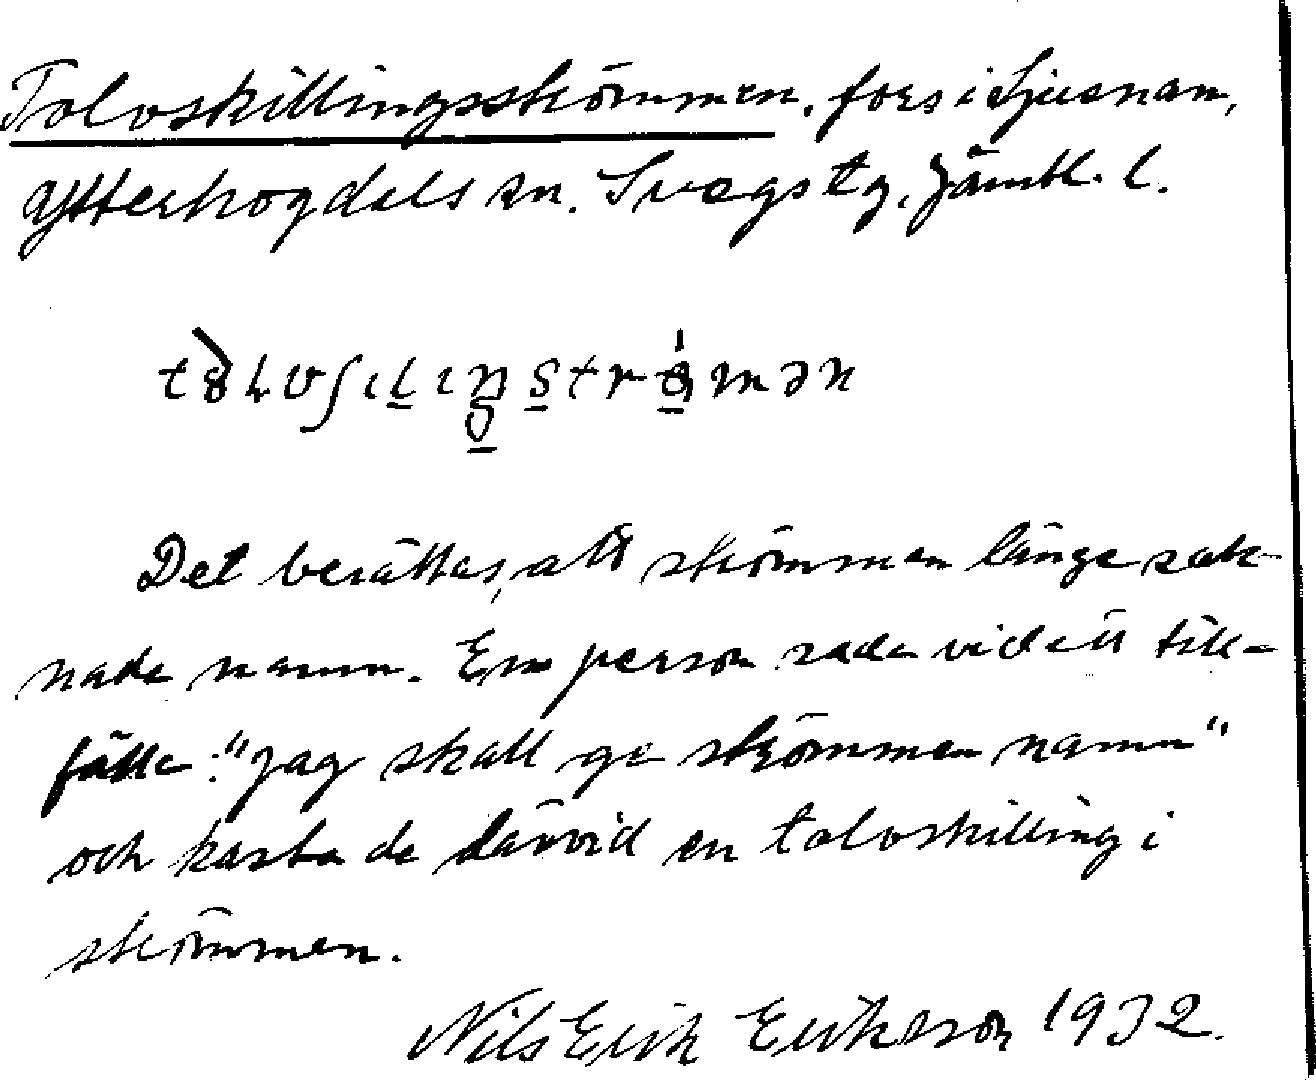 Tolvskillingsströmmen, fors i Ljusnan,
Ytterhogdals sn. Svegs tg, Jämtl. l.
Det berättas, att strömmen länge sak-
nade namn. En person sade vid ett till-
fälle: "Jag skall ge strömmen namn"
och kastade därvid en tolvskilling i
strömmen.
Nils Erik Eriksson 1932.